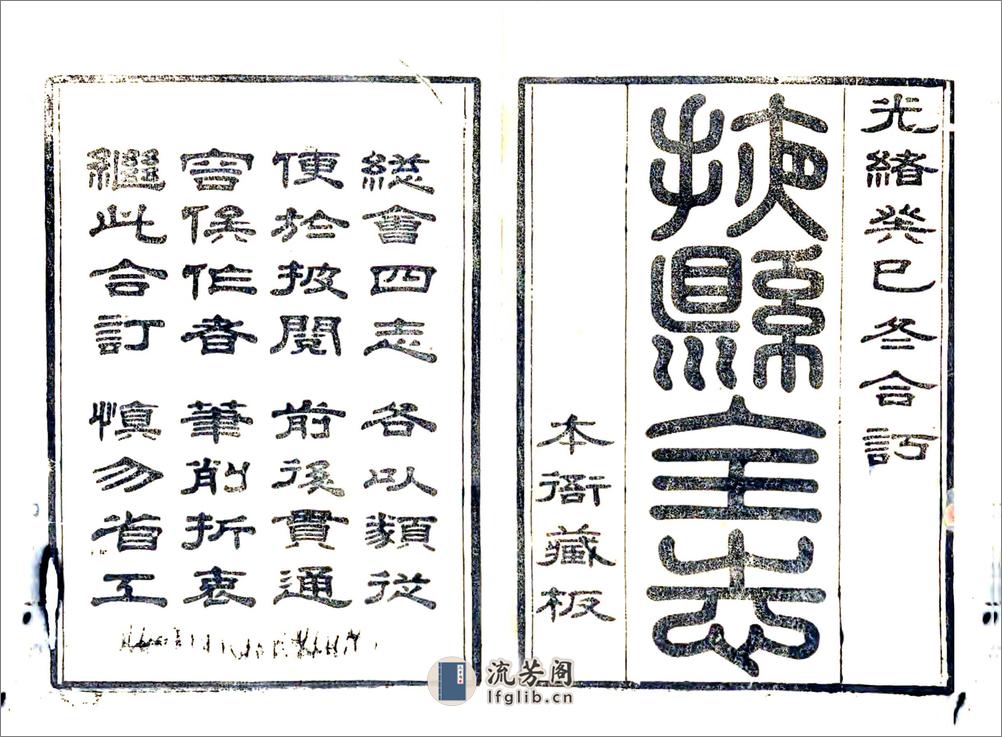 光緒癸巳冬合訂
掖縣全志
本衙藏板
總會四志 各以類從
便於披閱 前後貫通
俟作者 筆削折衷
繼此合訂 慎勿省工
流芳阁
lfglib.cn